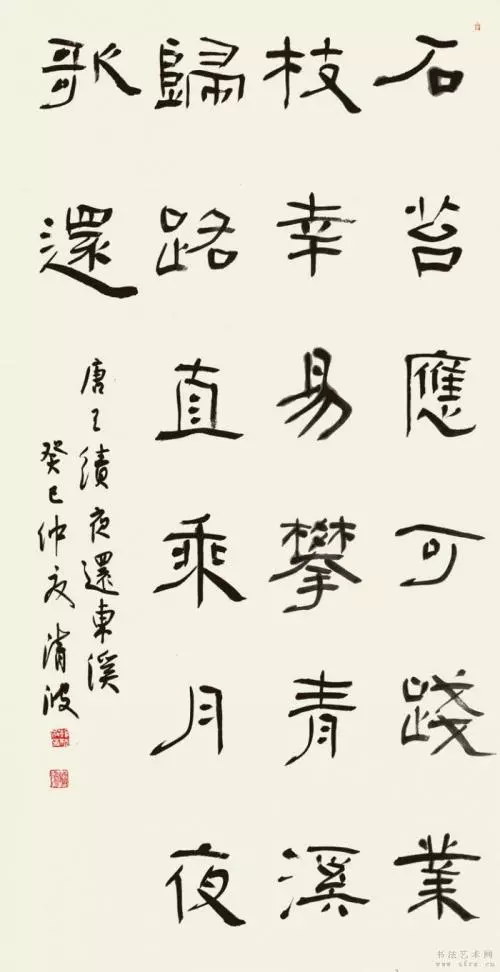 石苔應可踐業
枝幸易攀青溪
歸路直乘月夜
歌還
唐王績夜還東溪
癸巳仲夏清波
书法艺术网